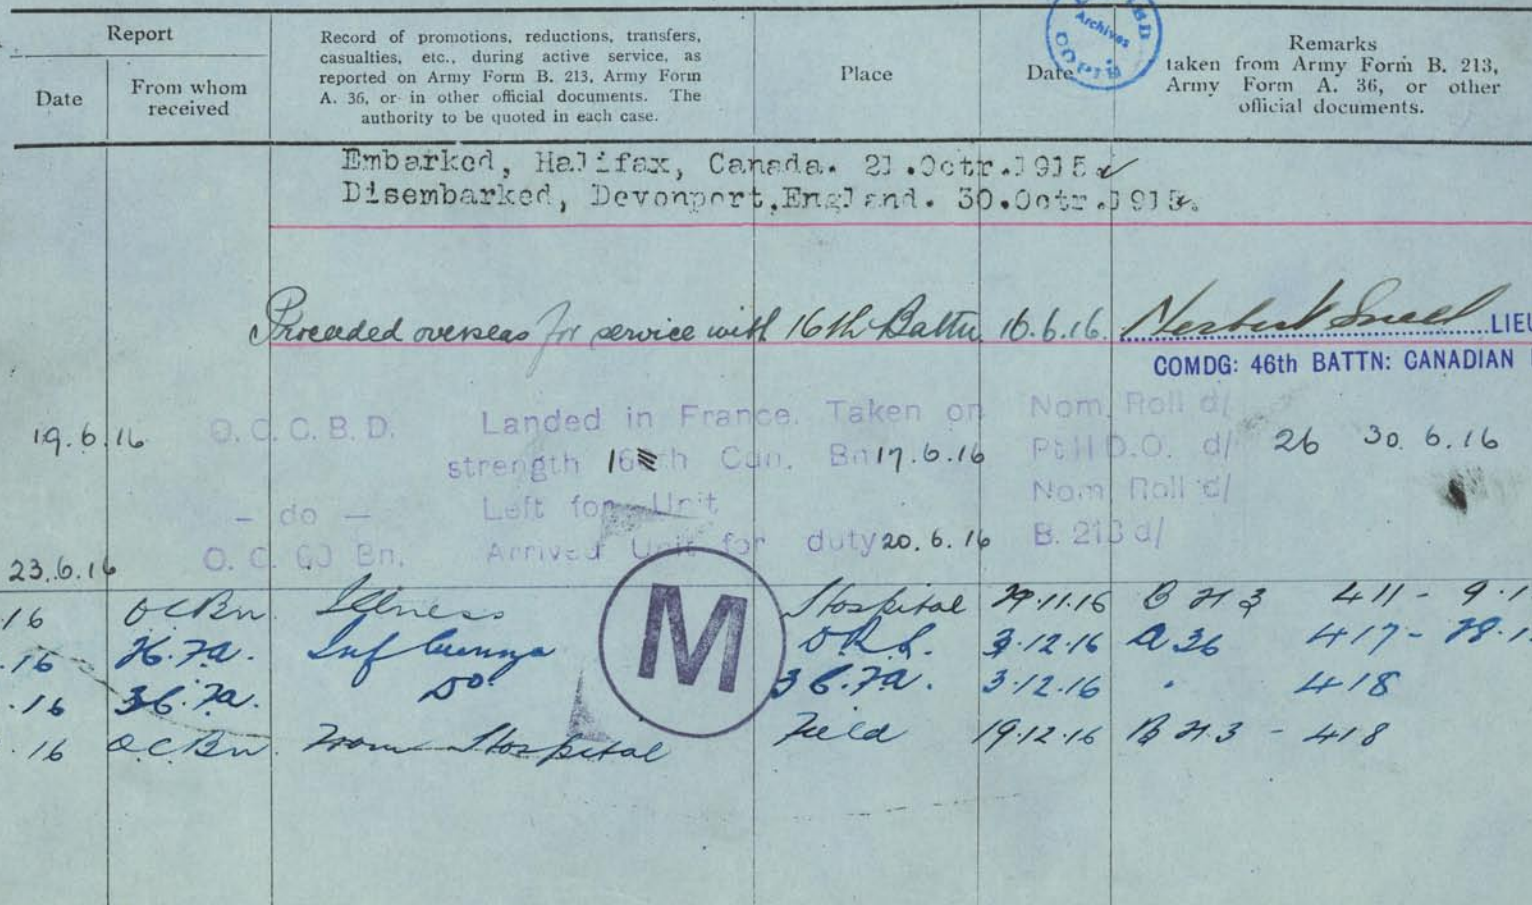 Report
Date
From whom
received
Record of promotions, reductions, transfers,
casualties, etc., during active service, as
reported on Army Form B. 213, Army Form
A. 36, or in other official documents. The
authority to be quoted in each case.
Place
Date
Archives
COPIED
Remarks
taken from Army Form B. 213,
Army Form A. 36, or other
official documents.
Embarked, Halifax, Canada. 21.Octr.1915
Disembarked, Devonport,England. 30.Octr.1915.
Proceeded overseas for service with 16th Battn 16.6.16. Herbert Snell LIEU
COMDG: 46th BATTN: CANADIAN
19.6.16 O.C. C.B.D. Landed in France. Taken on Nom. Roll d/
strength 16th Can. Bn 17.6.16 Pt II D.O. d/ 26 30.6.16
- do - Left for Unit Nom. Roll d/
23.6.16 O.C. Bn. Arrived Unit for duty 20.6.16 B. 213 d/
M
16 OC Bn Illness Hospital 29.11.16 B 213 411 - 9.1
.16 Influenza D.R.S. 3.12.16 A 36 417 - 28.1
.16 3 C.F.A. Do. 3 C.F.A. 3.12.16 " 418
.16 OC Bn From Hospital Field 19.12.16 B 213 - 418